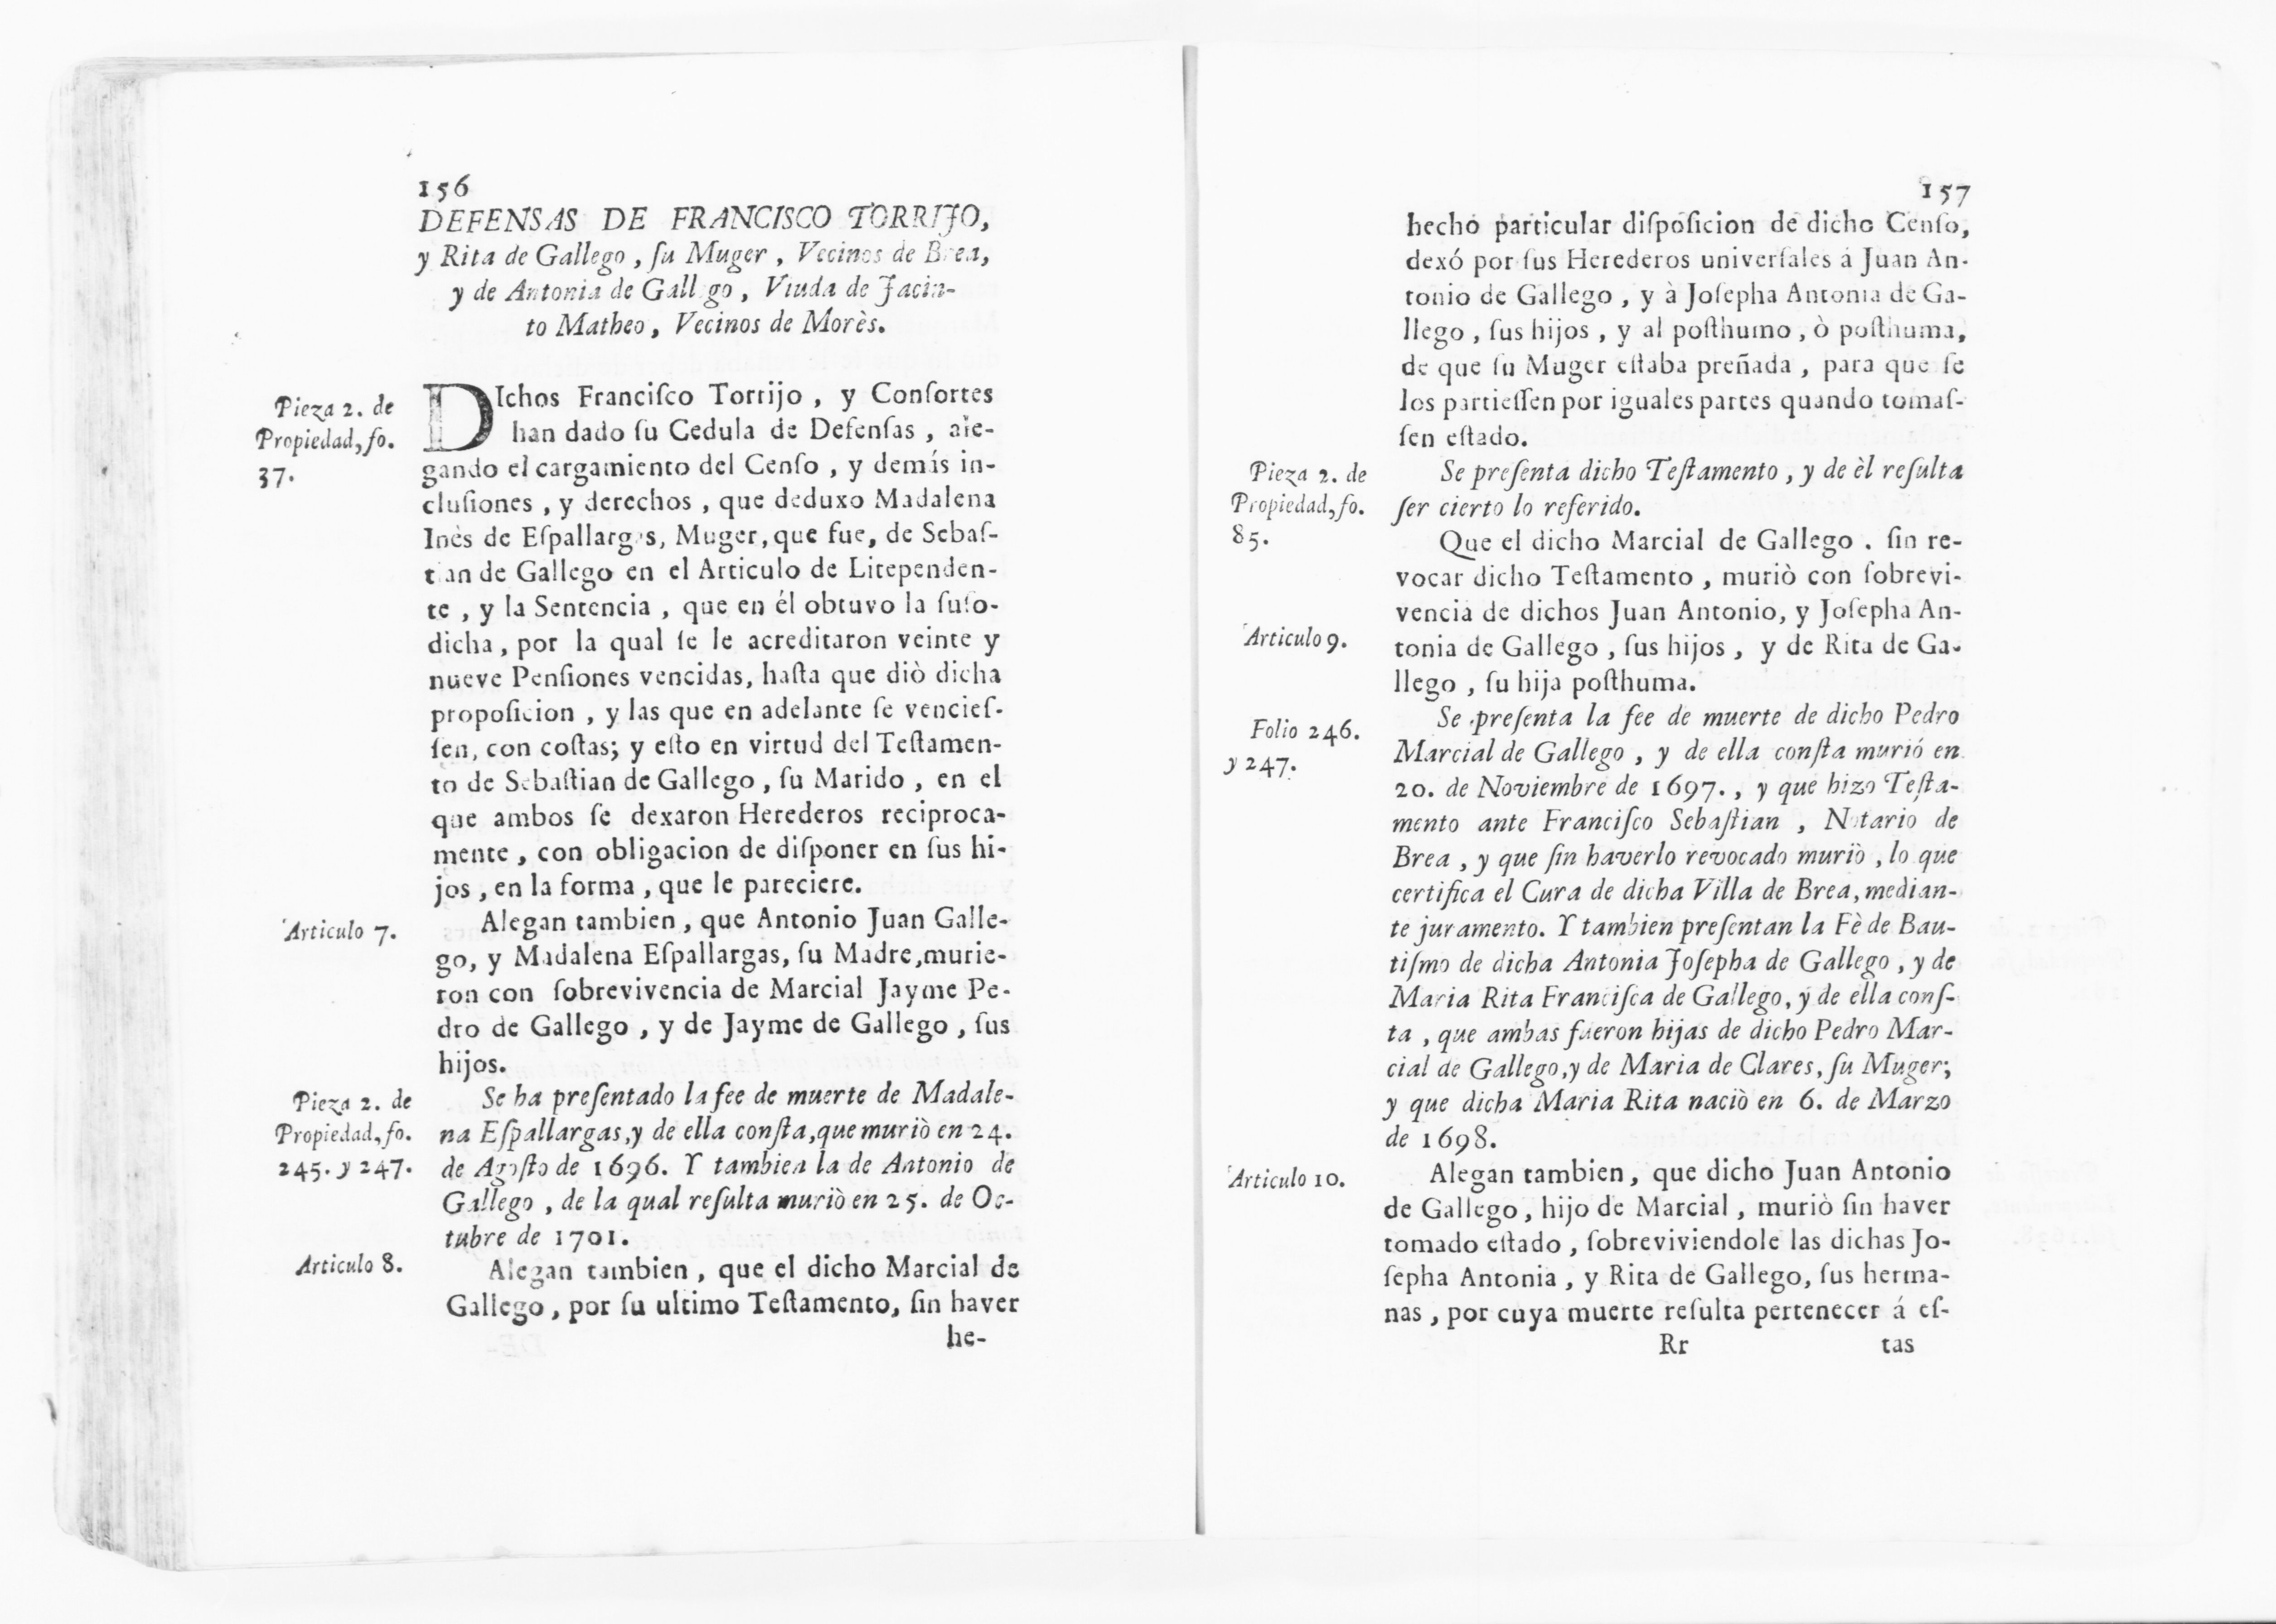 156
DEFENSAS DE FRANCISCO TORRIJO,
y Rita de Gallego , ſu Muger , Vecinos de Brea,
y de Antonia de Gallego , Viuda de Jacin-
to Matheo, Vecinos de Morès.
Pieza 2. de
Propiedad, fo.
37.
DIchos Franciſco Torrijo , y Conſortes
han dado ſu Cedula de Defenſas , ale-
gando el cargamiento del Cenſo , y demás in-
cluſiones , y derechos , que deduxo Madalena
Inès de Eſpallargas, Muger, que fue, de Sebaſ-
tian de Gallego en el Articulo de Litependen-
te , y la Sentencia , que en él obtuvo la ſuſo-
dicha , por la qual ſe le acreditaron veinte y
nueve Penſiones vencidas, haſta que diò dicha
propoſicion , y las que en adelante ſe vencieſ-
ſen, con coſtas; y eſto en virtud del Teſtamen-
to de Sebaſtian de Gallego , ſu Marido , en el
que ambos ſe dexaron Herederos reciproca-
mente , con obligacion de diſponer en ſus hi-
jos , en la forma , que le pareciere.
Articulo 7.
Alegan tambien , que Antonio Juan Galle-
go, y Madalena Eſpallargas, ſu Madre,murie-
ron con ſobrevivencia de Marcial Jayme Pe-
dro de Gallego , y de Jayme de Gallego , ſus
hijos.
Pieza 2. de
Propiedad, fo.
245. y 247.
Se ha preſentado la fee de muerte de Madale-
na Eſpallargas,y de ella conſta,que muriò en 24.
de Agoſto de 1696. Y tambien la de Antonio de
Gallego , de la qual reſulta muriò en 25. de Oc-
tubre de 1701.
Articulo 8.
Alegan tambien , que el dicho Marcial de
Gallego , por ſu ultimo Teſtamento, ſin haver
he-
157
hecho particular diſpoſicion de dicho Cenſo,
dexó por ſus Herederos univerſales á Juan An-
tonio de Gallego , y à Joſepha Antonia de Ga-
llego , ſus hijos , y al poſthumo , ò poſthuma,
de que ſu Muger eſtaba preñada , para que ſe
los partieſſen por iguales partes quando tomaſ-
ſen eſtado.
Pieza 2. de
Propiedad, fo.
85.
Se preſenta dicho Teſtamento , y de èl reſulta
ſer cierto lo referido.
Articulo 9.
Que el dicho Marcial de Gallego . ſin re-
vocar dicho Teſtamento , muriò con ſobrevi-
vencia de dichos Juan Antonio, y Joſepha An-
tonia de Gallego , ſus hijos , y de Rita de Ga-
llego , ſu hija poſthuma.
Folio 246.
y 247.
Se preſenta la fee de muerte de dicho Pedro
Marcial de Gallego , y de ella conſta murió en
20. de Noviembre de 1697. , y que hizo Teſta-
mento ante Franciſco Sebaſtian , Notario de
Brea , y que ſin haverlo revocado muriò , lo que
certifica el Cura de dicha Villa de Brea, median-
te juramento. Y tambien preſentan la Fè de Bau-
tiſmo de dicha Antonia Joſepha de Gallego , y de
Maria Rita Franciſca de Gallego, y de ella conſ-
ta , que ambas fueron hijas de dicho Pedro Mar-
cial de Gallego,y de Maria de Clares, ſu Muger;
y que dicha Maria Rita naciò en 6. de Marzo
de 1698.
Articulo 10.
Alegan tambien , que dicho Juan Antonio
de Gallego , hijo de Marcial , muriò ſin haver
tomado eſtado , ſobreviviendole las dichas Jo-
ſepha Antonia , y Rita de Gallego, ſus herma-
nas , por cuya muerte reſulta pertenecer á eſ-
Rr tas